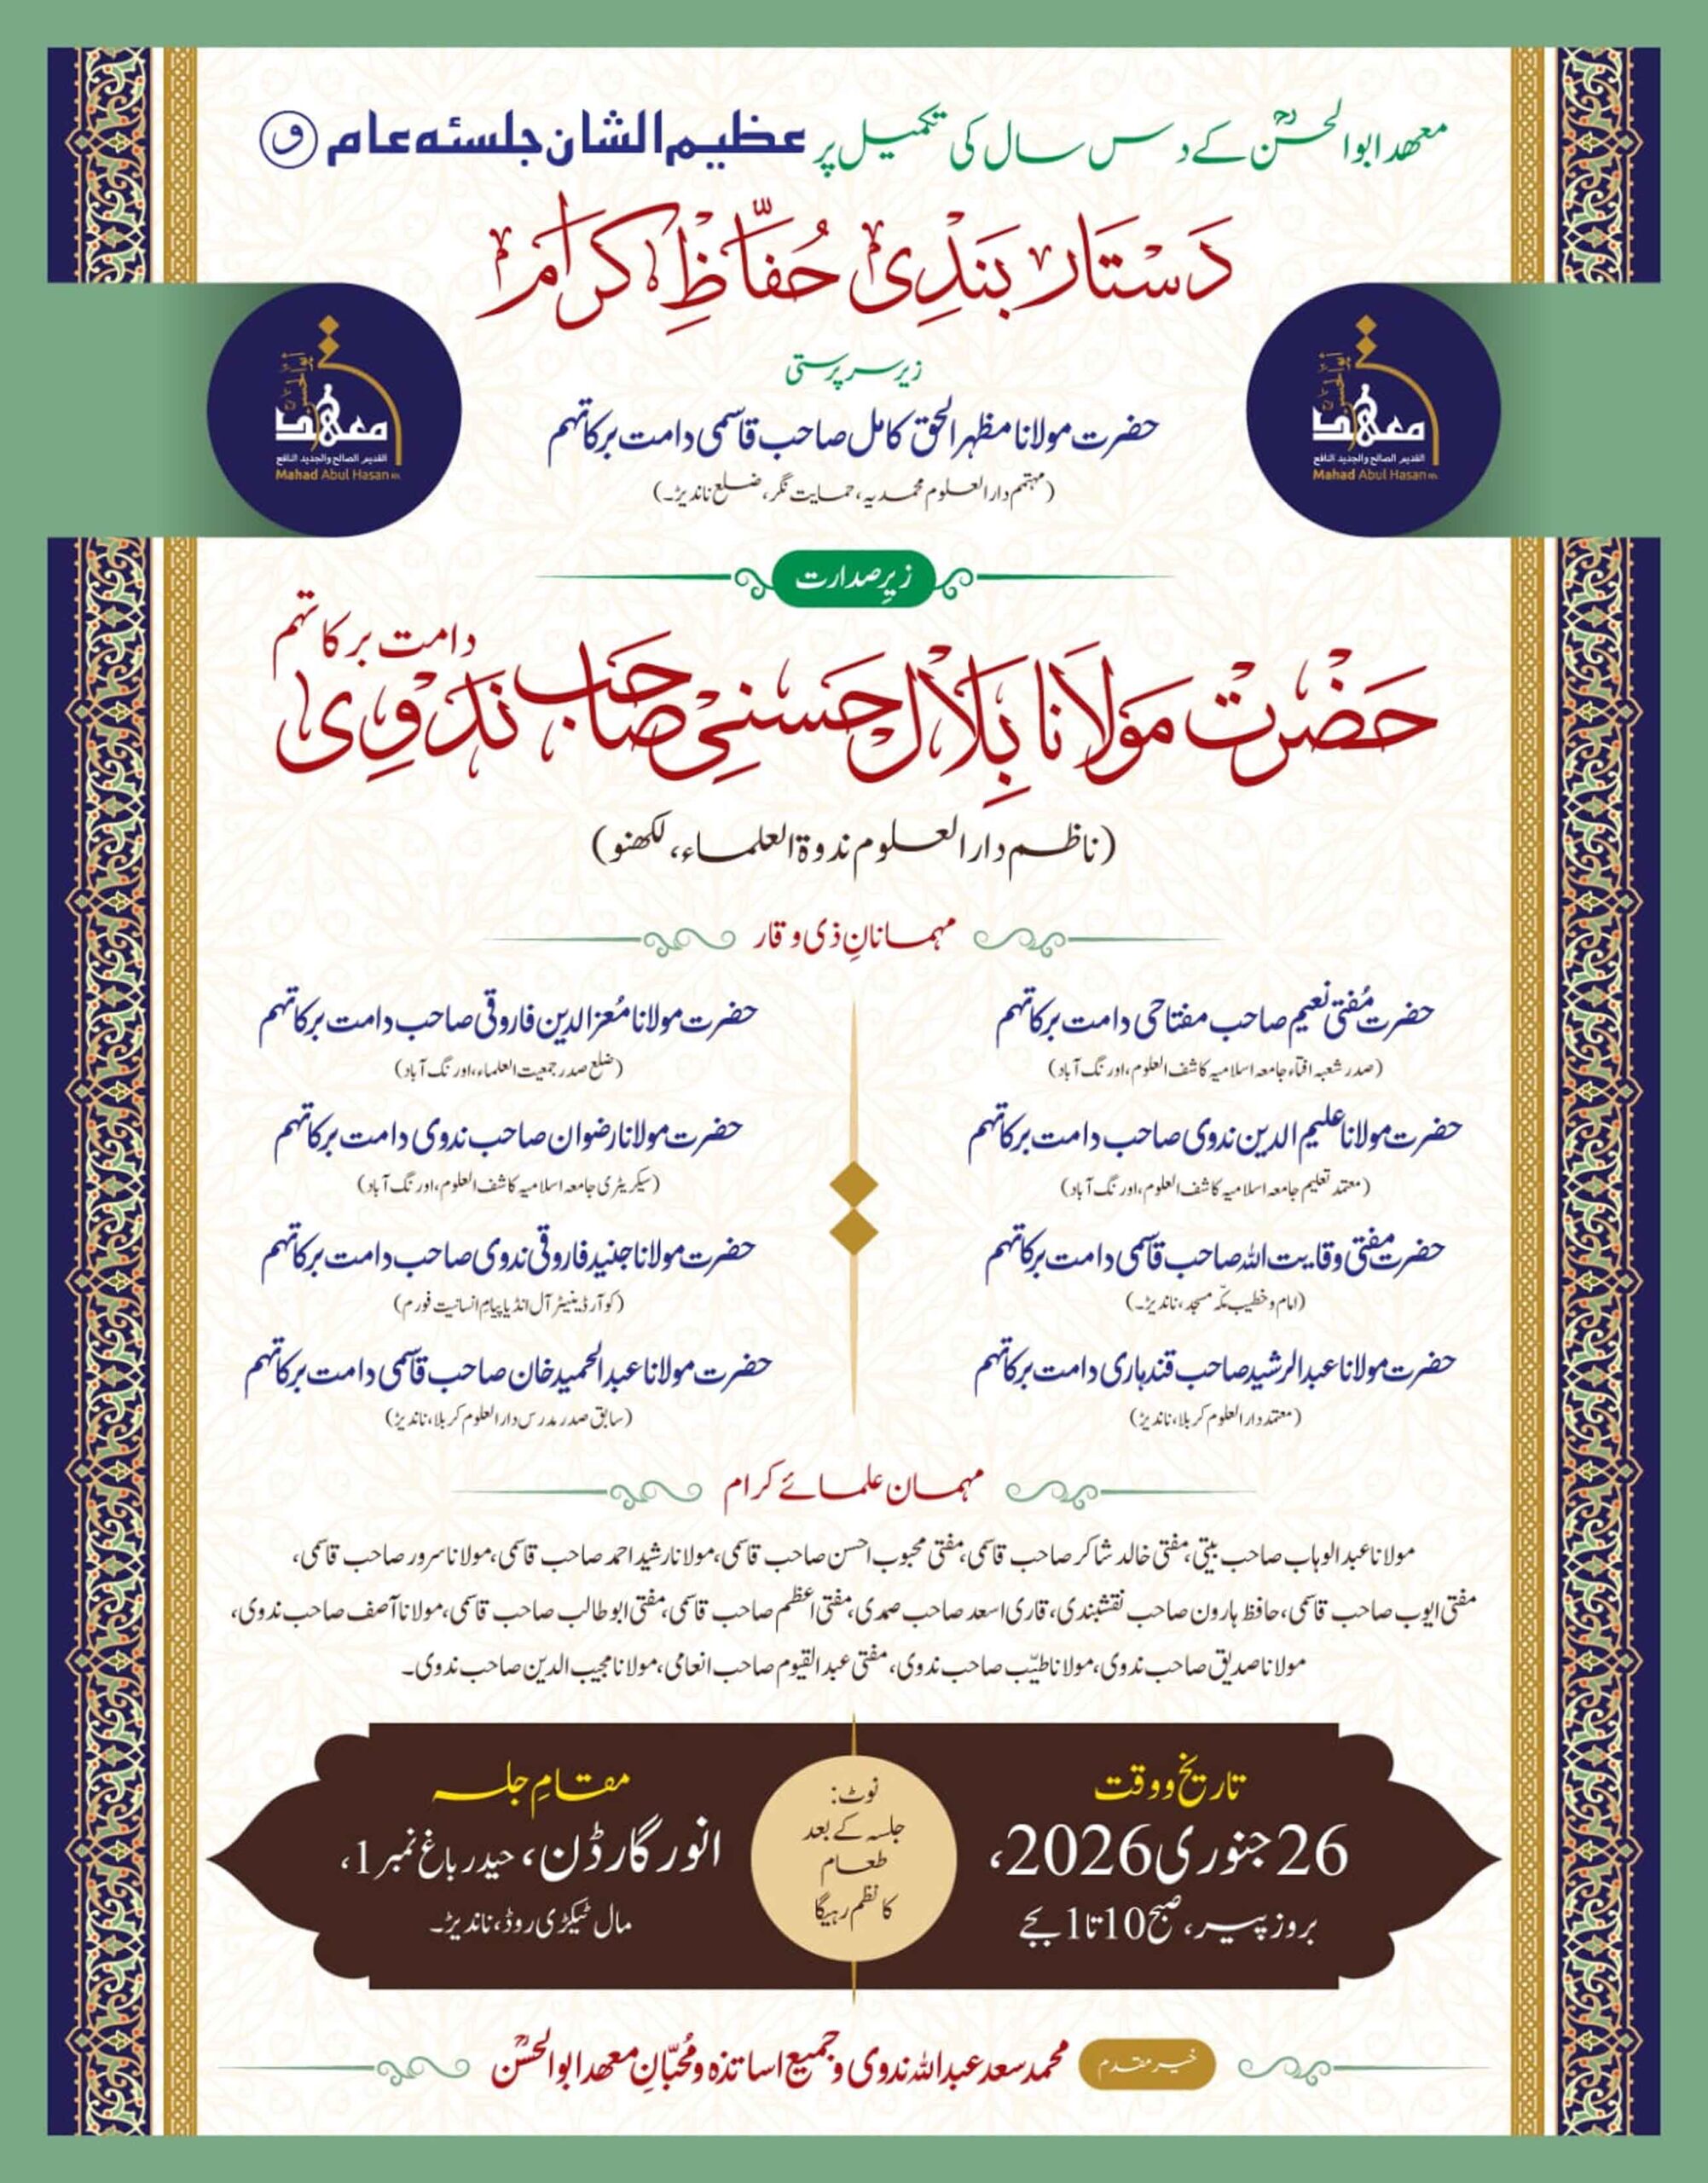 معھد ابوالحسنؒ کے دس سال کی تکمیل پر عظیم الشان جلسئہ عام و
دَسْتَار بَنْدِیْ حُفَّاظِ کرَامْ
زیر سرپرستی
حضرت مولانا مظہر الحق کامل صاحب قاسمی دامت برکاتہم
(مہتمم دارالعلوم محمدیہ، حمایت نگر، ضلع ناندیڑ۔)
ابوالحسن
معهد
القديم الصالح والجديد النافع
Mahad Abul Hasan
ابوالحسن
معهد
القديم الصالح والجديد النافع
Mahad Abul Hasan
زیرِ صدارت
حَضْرتْ مَولَانا بِلَالْ حَسَنِیْ صَاحَبْ نَدْوِی دامت برکاتہم
(ناظم دارالعلوم ندوۃ العلماء، لکھنو)
مہمانانِ ذی وقار
حضرت مُفتی نعیم صاحب مفتاحی دامت برکاتہم
(صدر شعبہ افتاء جامعہ اسلامیہ کاشف العلوم، اورنگ آباد)
حضرت مولانا علیم الدین ندوی صاحب دامت برکاتہم
(معتمد تعلیم جامعہ اسلامیہ کاشف العلوم، اورنگ آباد)
حضرت مفتی وقایت اللہ صاحب قاسمی دامت برکاتہم
(امام و خطیب مکّہ مسجد، ناندیڑ۔)
حضرت مولانا عبدالرشید صاحب قندہاری دامت برکاتہم
(معتمد دارالعلوم کربلا، ناندیڑ)
حضرت مولانا مُعزالدین فاروقی صاحب دامت برکاتہم
(ضلع صدر جمعیت العلماء، اورنگ آباد)
حضرت مولانا رضوان صاحب ندوی دامت برکاتہم
(سیکریٹری جامعہ اسلامیہ کاشف العلوم، اورنگ آباد)
حضرت مولانا جنید فاروقی ندوی صاحب دامت برکاتہم
(کوآرڈینیٹر آل انڈیا پیامِ انسانیت فورم)
حضرت مولانا عبدالحمید خان صاحب قاسمی دامت برکاتہم
(سابق صدر مدرس دارالعلوم کربلا، ناندیڑ)
مہمان علمائے کرام
مولانا عبدالوہاب صاحب بیتی، مفتی خالد شاکر صاحب قاسمی، مفتی محبوب احسن صاحب قاسمی، مولانا رشید احمد صاحب قاسمی، مولانا سرور صاحب قاسمی،
مفتی ایوب صاحب قاسمی، حافظ ہارون صاحب نقشبندی، قاری اسعد صاحب صمدی، مفتی اعظم صاحب قاسمی، مفتی ابوطالب صاحب قاسمی، مولانا آصف صاحب ندوی،
مولانا صدیق صاحب ندوی، مولانا طیّب صاحب ندوی، مفتی عبدالقیوم صاحب انعامی، مولانا مجیب الدین صاحب ندوی۔
تاریخ و وقت
26 جنوری 2026،
بروز پیر، صبح 10 تا 1 بجے
نوٹ:
جلسہ کے بعد
طعام
کا نظم رہیگا
مقامِ جلسہ
انور گارڈن، حیدر باغ نمبر 1،
مال ٹیکڑی روڈ، ناندیڑ۔
خیر مقدم محمد سعد عبداللہ ندوی و جمیع اساتذہ و مُحبّانِ معھد ابوالحسنؒ